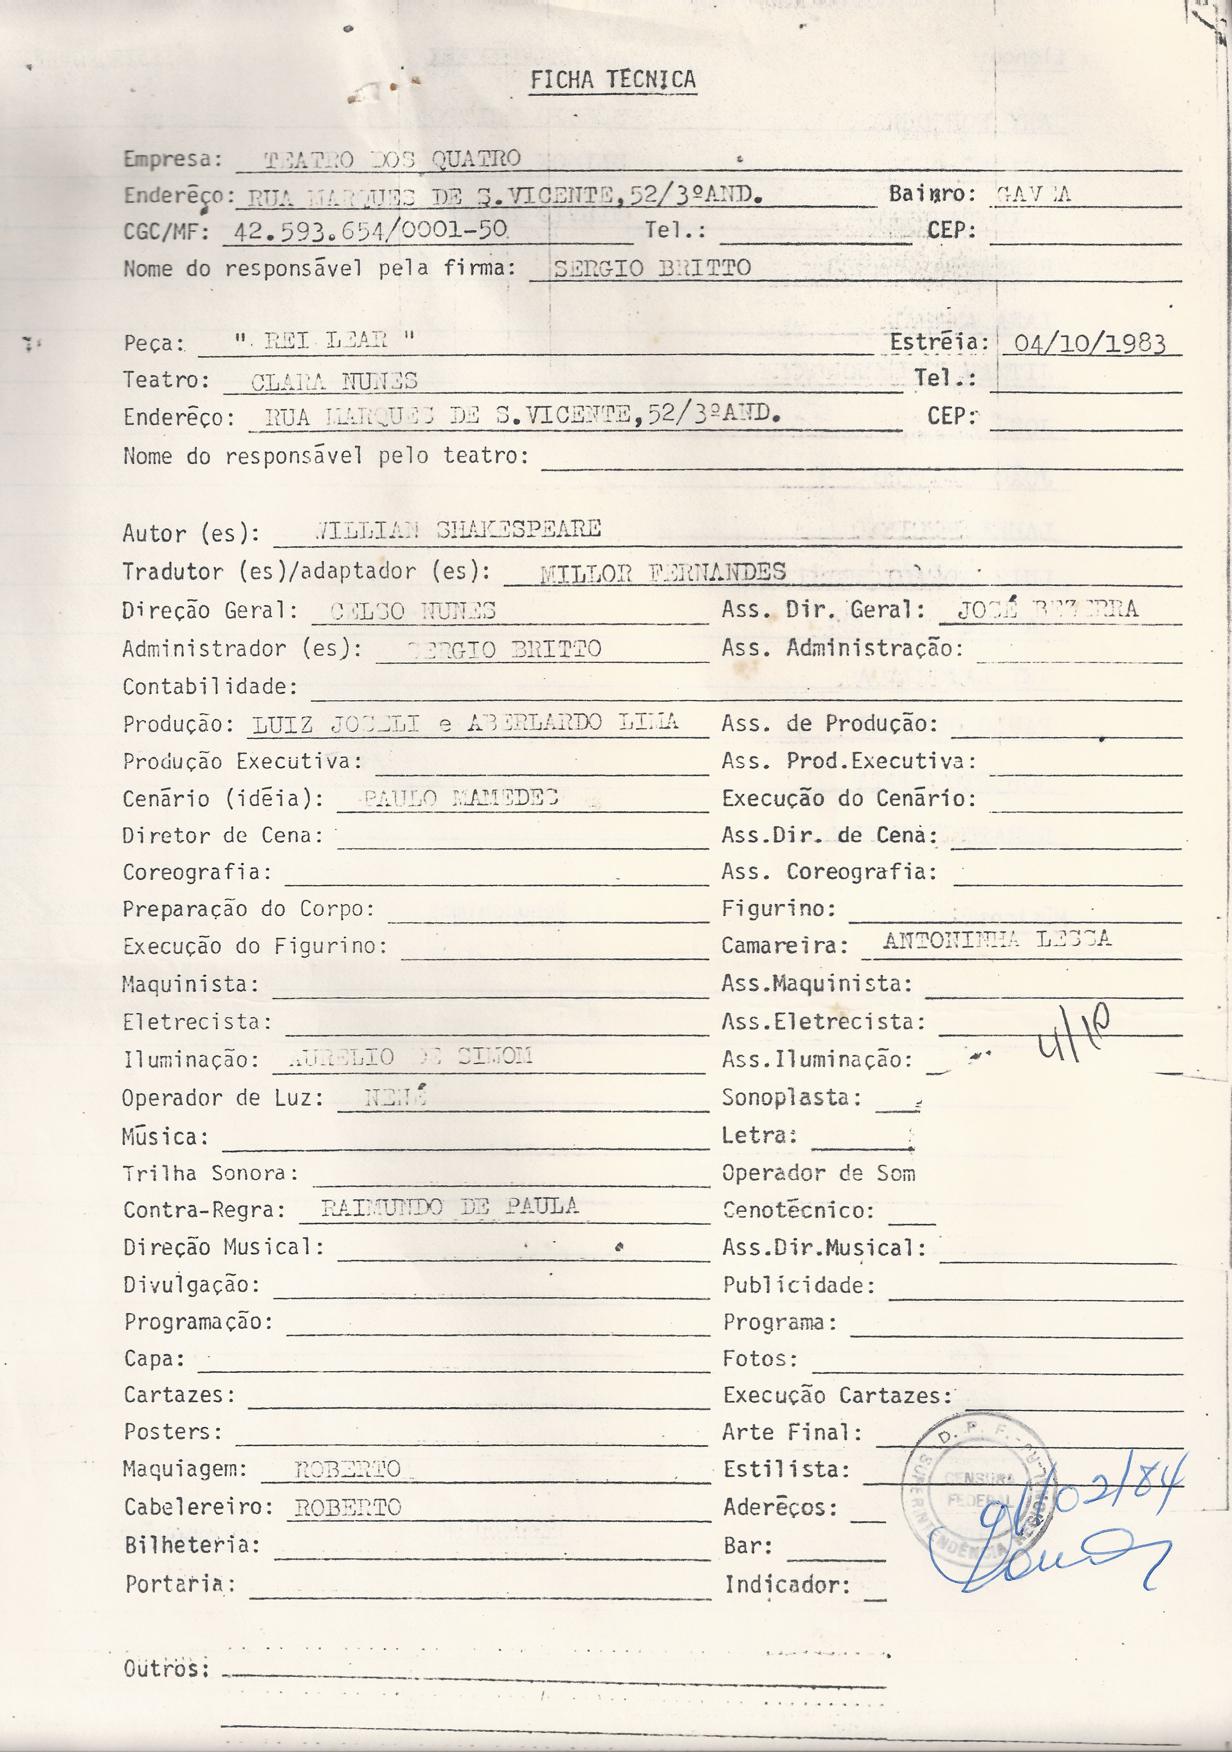 FICHA TECNICA
Empresa: TEATRO DOS QUATRO
Enderêço: RUA MARQUES DE S.VICENTE,52/3ºAND. Bairro: GAVEA
CGC/MF: 42.593.654/0001-50 Tel.: CEP:
Nome do responsável pela firma: SERGIO BRITTO
Peça: " REI LEAR " Estréia: 04/10/1983
Teatro: CLARA NUNES Tel.:
Enderêço: RUA MARQUES DE S.VICENTE,52/3ºAND. CEP:
Nome do responsável pelo teatro:
Autor (es): WILLIAN SHAKESPEARE
Tradutor (es)/adaptador (es): MILLOR FERNANDES
Direção Geral: CELSO NUNES Ass. Dir. Geral: JOSÉ BEZERRA
Administrador (es): SERGIO BRITTO Ass. Administração:
Contabilidade:
Produção: LUIZ JOCELI e ABERLARDO LIMA Ass. de Produção:
Produção Executiva: Ass. Prod.Executiva:
Cenário (idéia): PAULO MAMEDES Execução do Cenário:
Diretor de Cena: Ass.Dir. de Cena:
Coreografia: Ass. Coreografia:
Preparação do Corpo: Figurino:
Execução do Figurino: Camareira: ANTONINHA LESSA
Maquinista: Ass.Maquinista:
Eletrecista: Ass.Eletrecista:
4/10
Iluminação: AURELIO DE SIMOM Ass.Iluminação:
Operador de Luz: NENÉ Sonoplasta:
Música: Letra:
Trilha Sonora: Operador de Som
Contra-Regra: RAIMUNDO DE PAULA Cenotécnico:
Direção Musical: Ass.Dir.Musical:
Divulgação: Publicidade:
Programação: Programa:
Capa: Fotos:
Cartazes: Execução Cartazes:
Posters: Arte Final:
Maquiagem: ROBERTO Estilista:
Cabelereiro: ROBERTO Aderêços:
Bilheteria: Bar:
Portaria: Indicador:
D. P. F. - SUPERINTENDÊNCIA REGIONAL-RJ
CENSURA
FEDERAL
/02/84
Outros: